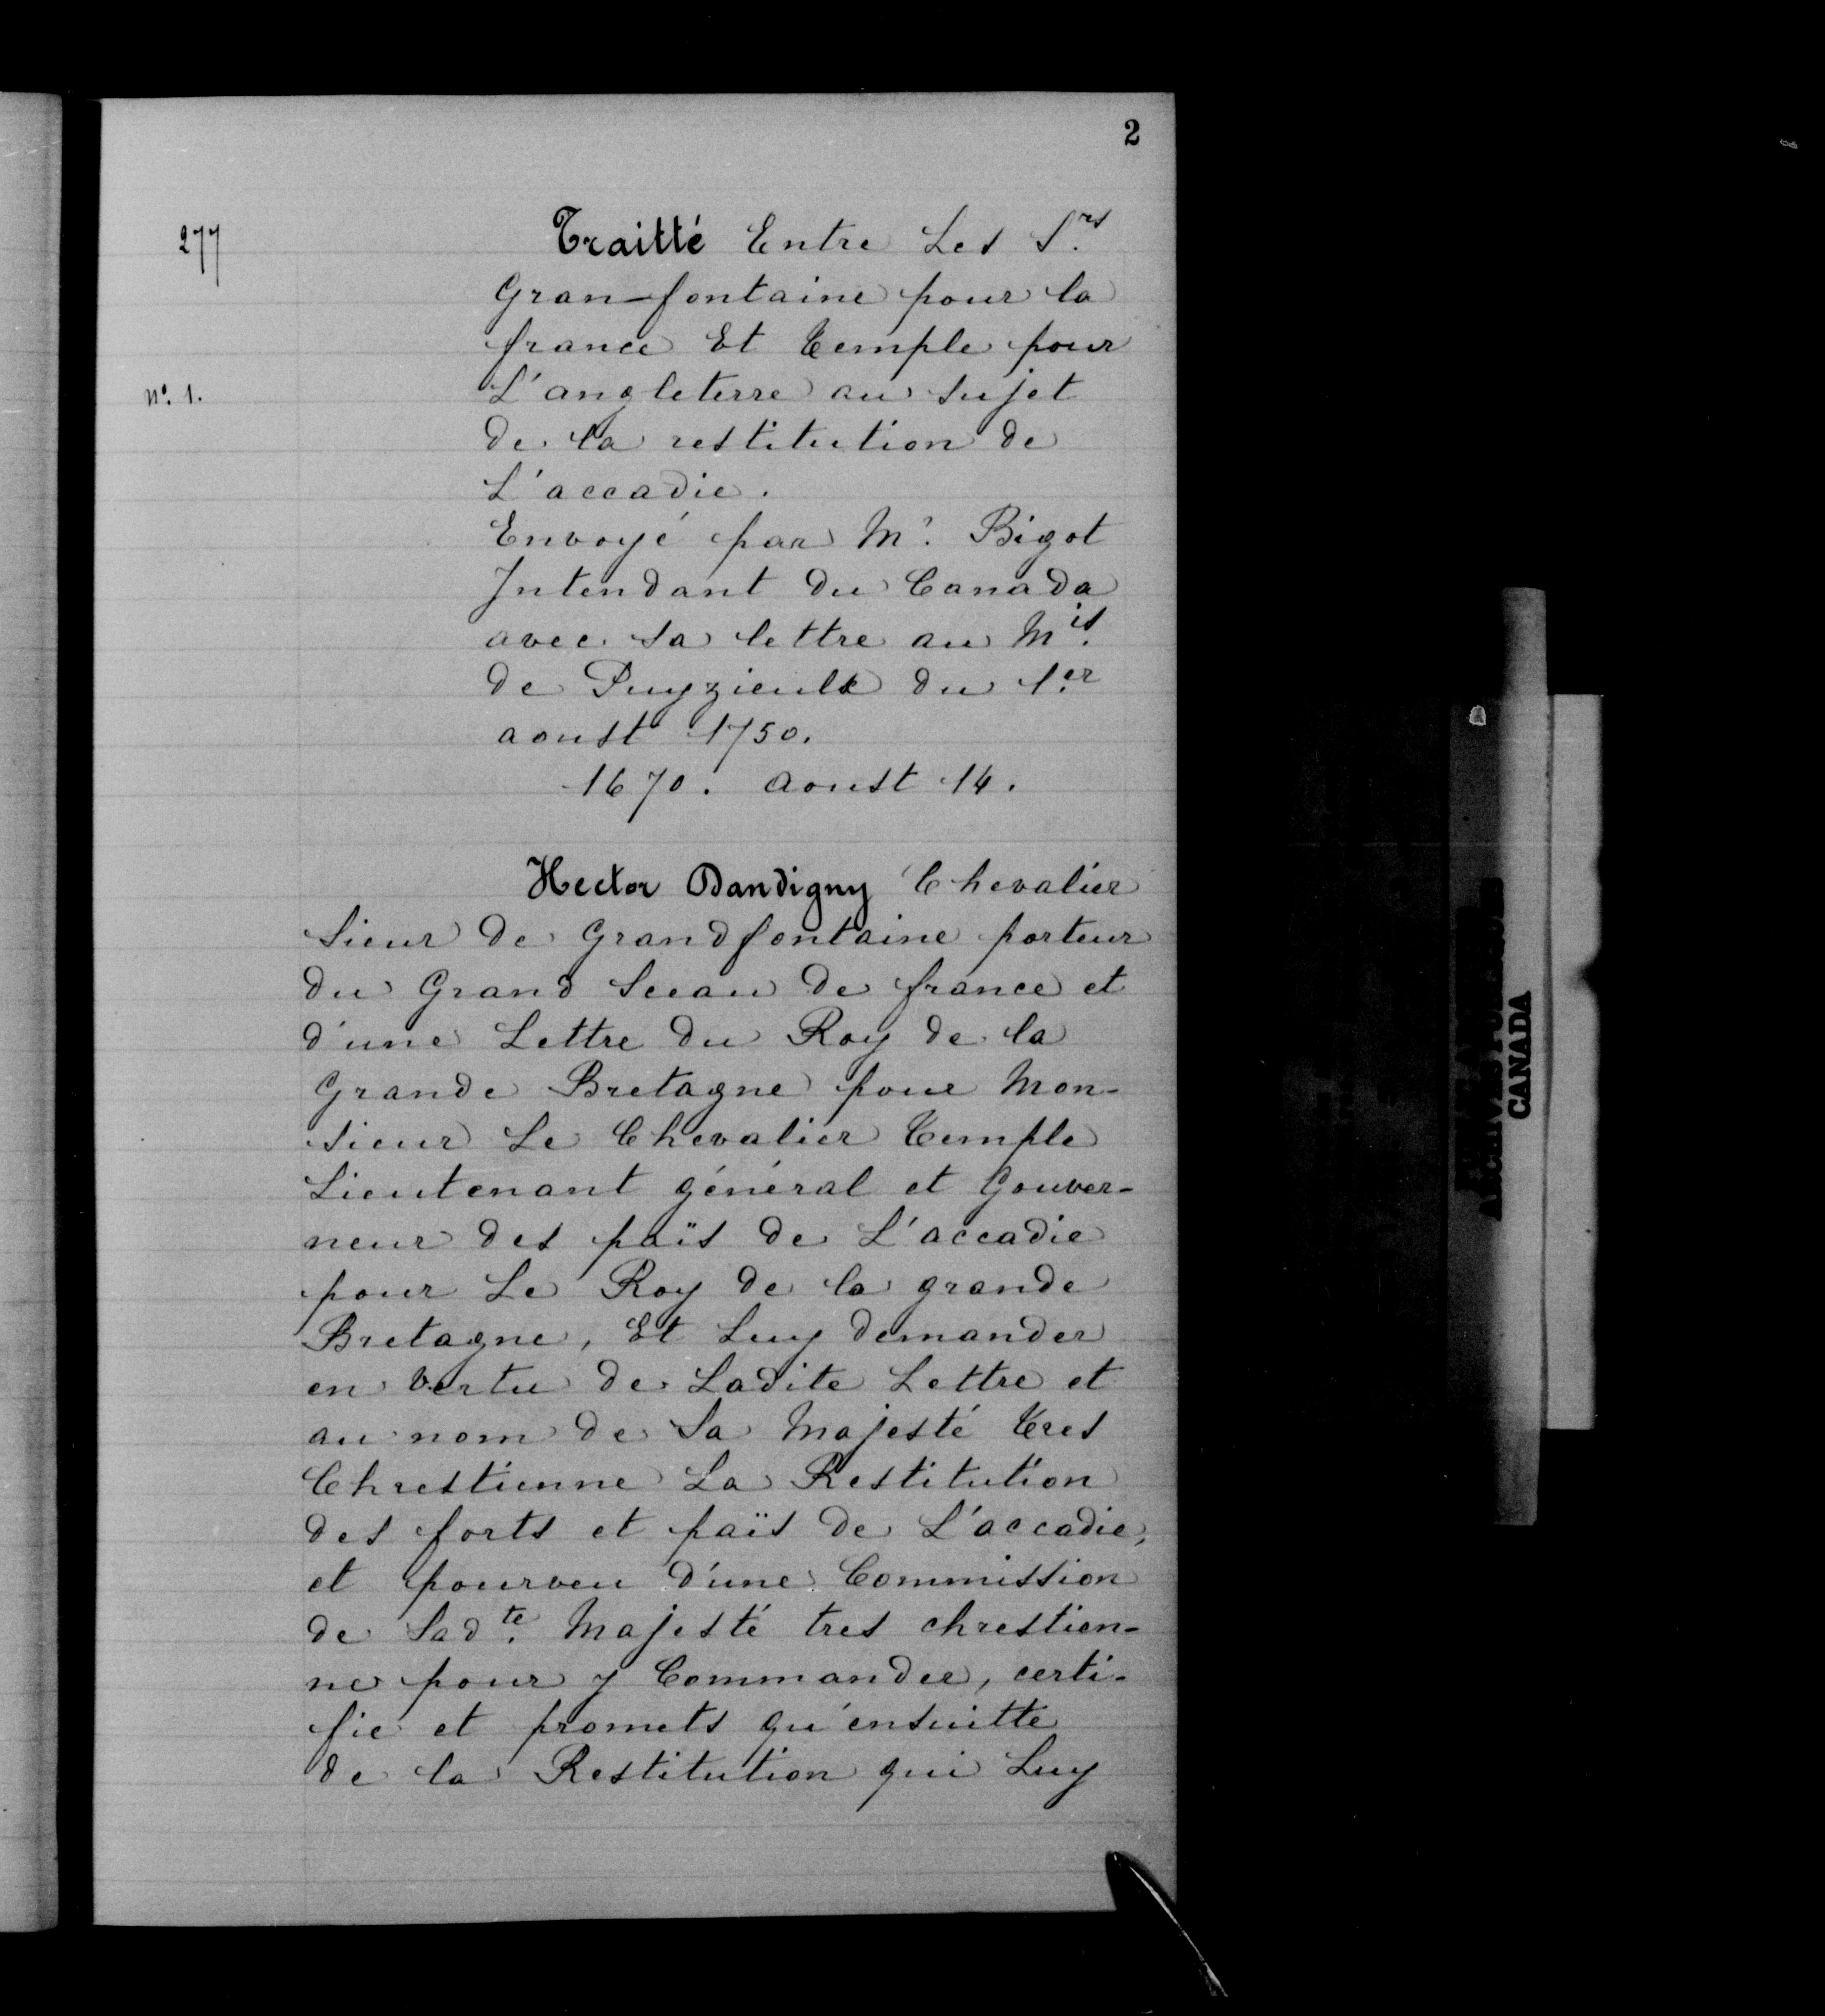 2
277
Traitté Entre Les S.rs
Gran-fontaine pour la
france Et Temple pour
n.º 1.
L'angleterre au sujet
de la restitution de
L'accadie.
Envoyé par M.r Bigot
Intendant du Canada
avec sa lettre au M.is
de Puyzieulx du 1.er
aoust 1750.
1670. aoust 14.
Hector Dandigny Chevalier
Sieur de Grandfontaine porteur
du Grand Sceau de france et
d'une Lettre du Roy de la
Grande Bretagne pour Mon-
sieur Le Chevalier Temple
Lieutenant général et Gouver-
neur des païs de L'accadie
pour Le Roy de la grande
Bretagne, Et Luy demander
en vertu de Ladite Lettre et
au nom de Sa Majesté Tres
Chrestienne La Restitution
des forts et païs de L'accadie,
et pourveu d'une Commission
de Sad.te Majesté tres chrestien-
ne pour y Commander, certi-
fie et promets qu'ensuitte
de la Restitution qui Luy
CANADA